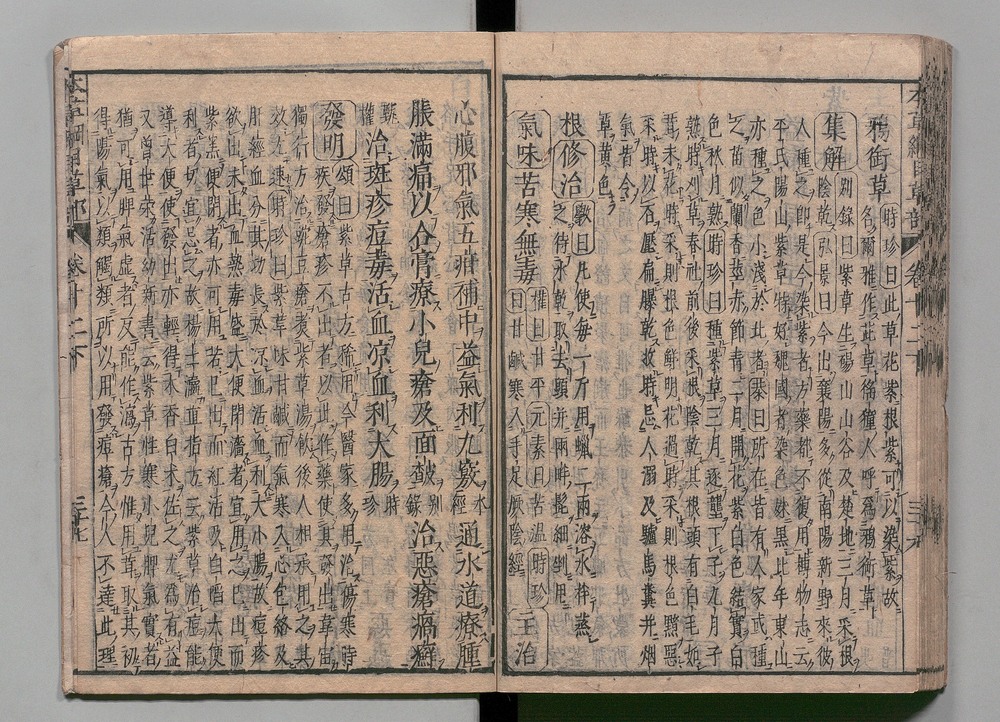 鴉銜草
時珍曰此草花紫根紫可以染紫故
名爾雅作茈草猺獞人呼爲鴉銜草
集解
別錄曰紫草生碭山山谷及楚地三月采根
陰乾弘景曰今出襄陽多從南陽新野來彼
人種之即是今染紫者方藥都不復用博物志云
平氏陽山紫草特好魏國者染色殊黑比年東山
亦種之色小淺於此者恭曰所在皆有人家或種
之苗似蘭香莖赤節青二月開花紫白色結實白
色秋月熟時珍曰種紫草三月逐壟下子九月子
熟時刈草春社前後采根陰乾其根頭有白毛如
茸未花時采則根色鮮明花過時采則根色黯惡
采時以石壓扁曝乾收時忌人溺及驢馬糞并烟
氣皆令
草黃色
根修治
斅曰凡使每一斤用蠟二兩溶水拌蒸
之待水乾取去頭并兩畔髭細剉用
氣味苦寒無毒
權曰甘平元素曰苦溫時珍
曰甘鹹寒入手足厥陰經
主治
心腹邪氣五疸補中益氣利九竅
通水道療腫
脹滿痛以合膏療小兒瘡及面皶
別錄
治惡瘡瘑癬
甄
權
治斑疹痘毒活血凉血利大腸
時
珍
發明
頌曰紫草古方稀用今醫家多用治傷寒時
疾發瘡疹不出者以此作藥使其發出韋宙
獨行方治豌豆瘡煮紫草湯飮後人相承用之其
效尤速時珍曰紫草味甘鹹而氣寒入心包絡及
肝經血分其功長於凉血活血利大小腸故痘疹
欲出未出血熱毒盛大便閉濇者宜用之已出而
紫黑便閉者亦可用若已出而紅活及白陷大便
利者切宜忌之故楊士瀛直指方云紫草治痘能
導大便使發出亦輕得木香白朮佐之尤爲有益
又曾世榮活幼新書云紫草性寒小兒脾氣實者
猶可用脾氣虛者反能作瀉古方惟用茸取其初
得陽氣以類觸類所以用發痘瘡今人不達此理